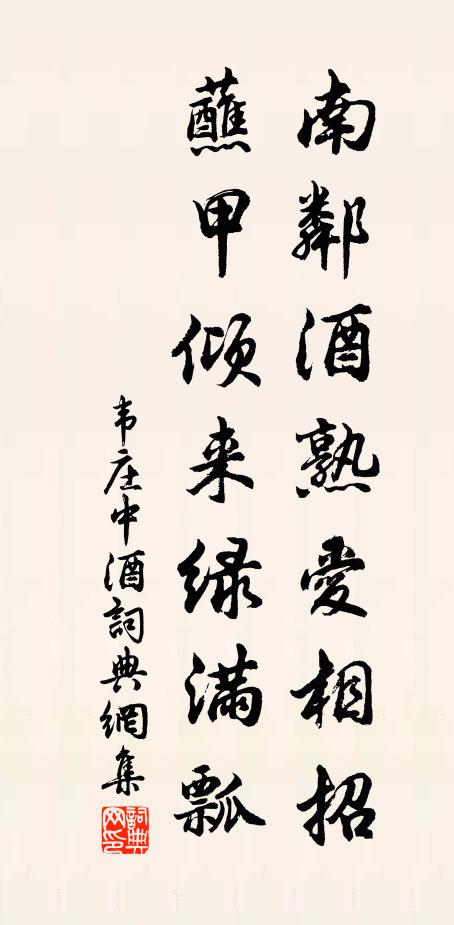 南鄰酒熟愛相招
蘸甲傾来绿滿瓢
韦庄中酒詞典網集
詞典网印